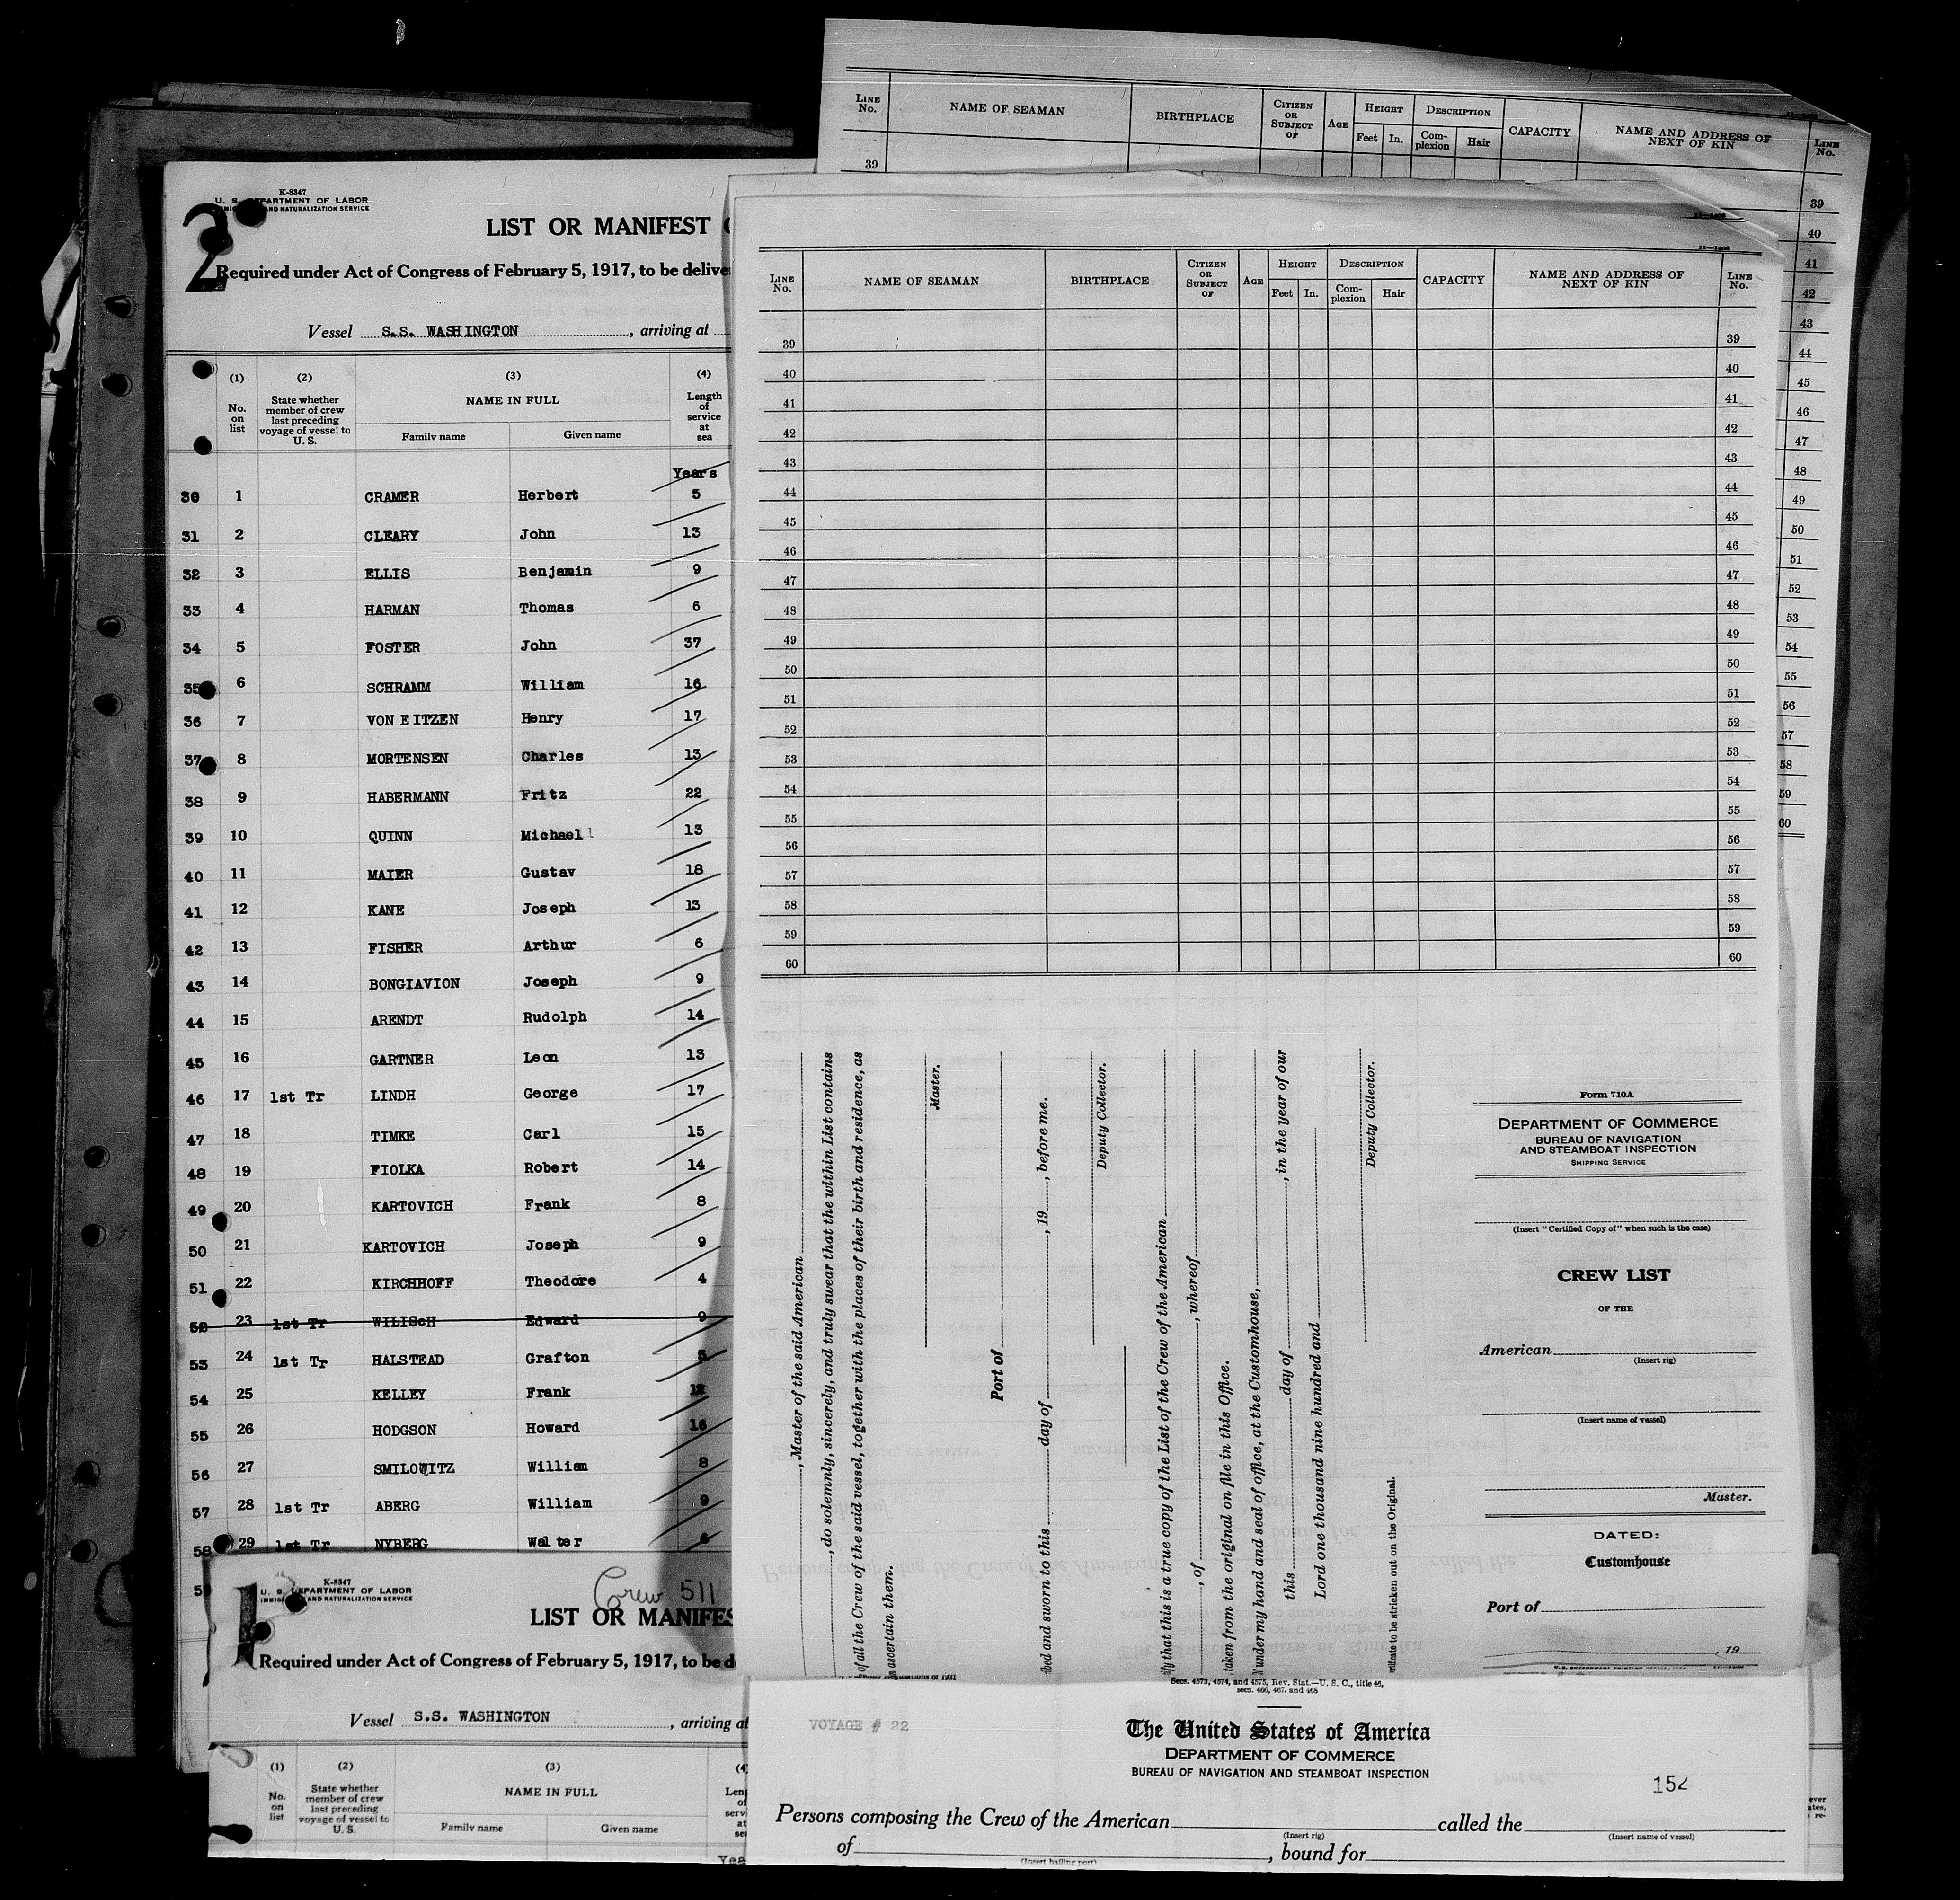 LINE No. NAME OF SEAMAN BIRTHPLACE CITIZEN OR SUBJECT OF AGE HEIGHT Feet In. DESCRIPTION Complexion Hair CAPACITY NAME AND ADDRESS OF NEXT OF KIN LINE No.
39 39
40
41
42
43
44
45
46
47
48
49
50
51
52
53
54
55
56
57
58
59
60
2
K-8347
U. S. DEPARTMENT OF LABOR
AND NATURALIZATION SERVICE
LIST OR MANIFEST
Required under Act of Congress of February 5, 1917, to be delive
Vessel S.S. WASHINGTON, arriving at
(1) (2) (3) (4)
No. on list State whether member of crew last preceding voyage of vessel to U. S. NAME IN FULL Length of service at sea
Family name Given name
Years
30 1 CRAMER Herbert 5
31 2 CLEARY John 13
32 3 ELLIS Benjamin 9
33 4 HARMAN Thomas 6
34 5 FOSTER John 37
35 6 SCHRAMM William 16
36 7 VON EITZEN Henry 17
37 8 MORTENSEN Charles 13
38 9 HABERMANN Fritz 22
39 10 QUINN Michael 13
40 11 MAIER Gustav 18
41 12 KANE Joseph 13
42 13 FISHER Arthur 6
43 14 BONGIAVION Joseph 9
44 15 ARENDT Rudolph 14
45 16 GARTNER Leon 13
46 17 1st Tr LINDH George 17
47 18 TIMKE Carl 15
48 19 FIOLKA Robert 14
49 20 KARTOVICH Frank 8
50 21 KARTOVICH Joseph 9
51 22 KIRCHHOFF Theodore 4
52 23 1st Tr WILISCH Edward 9
53 24 1st Tr HALSTEAD Grafton 5
54 25 KELLEY Frank
55 26 HODGSON Howard 16
56 27 SMILOWITZ William 8
57 28 1st Tr ABERG William 9
58 29 1st Tr NYBERG Walter 6
LINE No. NAME OF SEAMAN BIRTHPLACE CITIZEN OR SUBJECT OF AGE HEIGHT Feet In. DESCRIPTION Complexion Hair CAPACITY NAME AND ADDRESS OF NEXT OF KIN LINE No.
39 39
40 40
41 41
42 42
43 43
44 44
45 45
46 46
47 47
48 48
49 49
50 50
51 51
52 52
53 53
54 54
55 55
56 56
57 57
58 58
59 59
60 60
, Master of the said American
, do solemnly, sincerely, and truly swear that the within List contains
of all the Crew of the said vessel, together with the places of their birth and residence, as
ascertain them.
Master.
Port of
bed and sworn to this day of , 19 , before me.
Deputy Collector.
ify that this is a true copy of the List of the Crew of the American
, of , whereof
taken from the original on file in this Office.
under my hand and seal of office, at the Customhouse,
this day of , in the year of our
Lord one thousand nine hundred and
Deputy Collector.
tificate to be stricken out on the Original.
Form 710A
DEPARTMENT OF COMMERCE
BUREAU OF NAVIGATION
AND STEAMBOAT INSPECTION
SHIPPING SERVICE
(Insert "Certified Copy of" when such is the case)
CREW LIST
OF THE
American
(Insert rig)
(Insert name of vessel)
Master.
DATED:
Customhouse
Port of
, 19
1
K-8347
U. S. DEPARTMENT OF LABOR
AND NATURALIZATION SERVICE
Crew 511
LIST OR MANIFES
Required under Act of Congress of February 5, 1917, to be d
Vessel S.S. WASHINGTON, arriving at
(1) (2) (3) (4
No. on list State whether member of crew last preceding voyage of vessel to U. S. NAME IN FULL
Family name Given name
Yea
Secs. 4573, 4574, and 4575, Rev. Stat.—U. S. C., title 46,
secs. 466, 467, and 468
VOYAGE # 22
The United States of America
DEPARTMENT OF COMMERCE
BUREAU OF NAVIGATION AND STEAMBOAT INSPECTION
152
Persons composing the Crew of the American called the
(Insert rig) (Insert name of vessel)
of , bound for
(Insert hailing port)